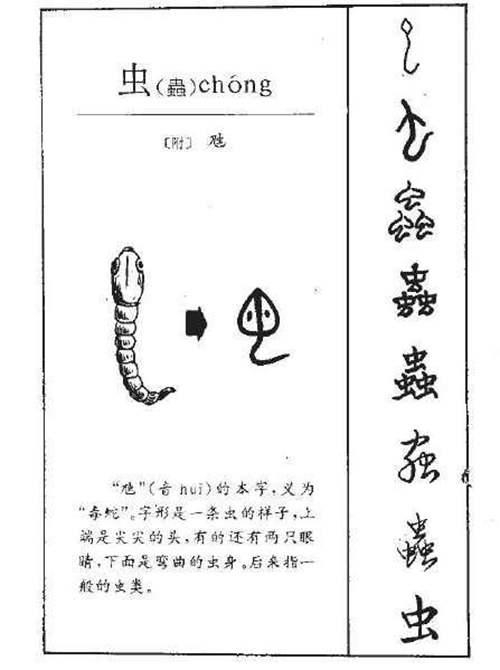 虫(蟲)chóng
〔附〕 虺
“虺”(音 huǐ)的本字,义为
“毒蛇”。字形是一条虫的样子,上
端是尖尖的头,有的还有两只眼
睛,下面是弯曲的虫身。后来指一
般的虫类。
蟲
蟲
蟲
蟲
虫